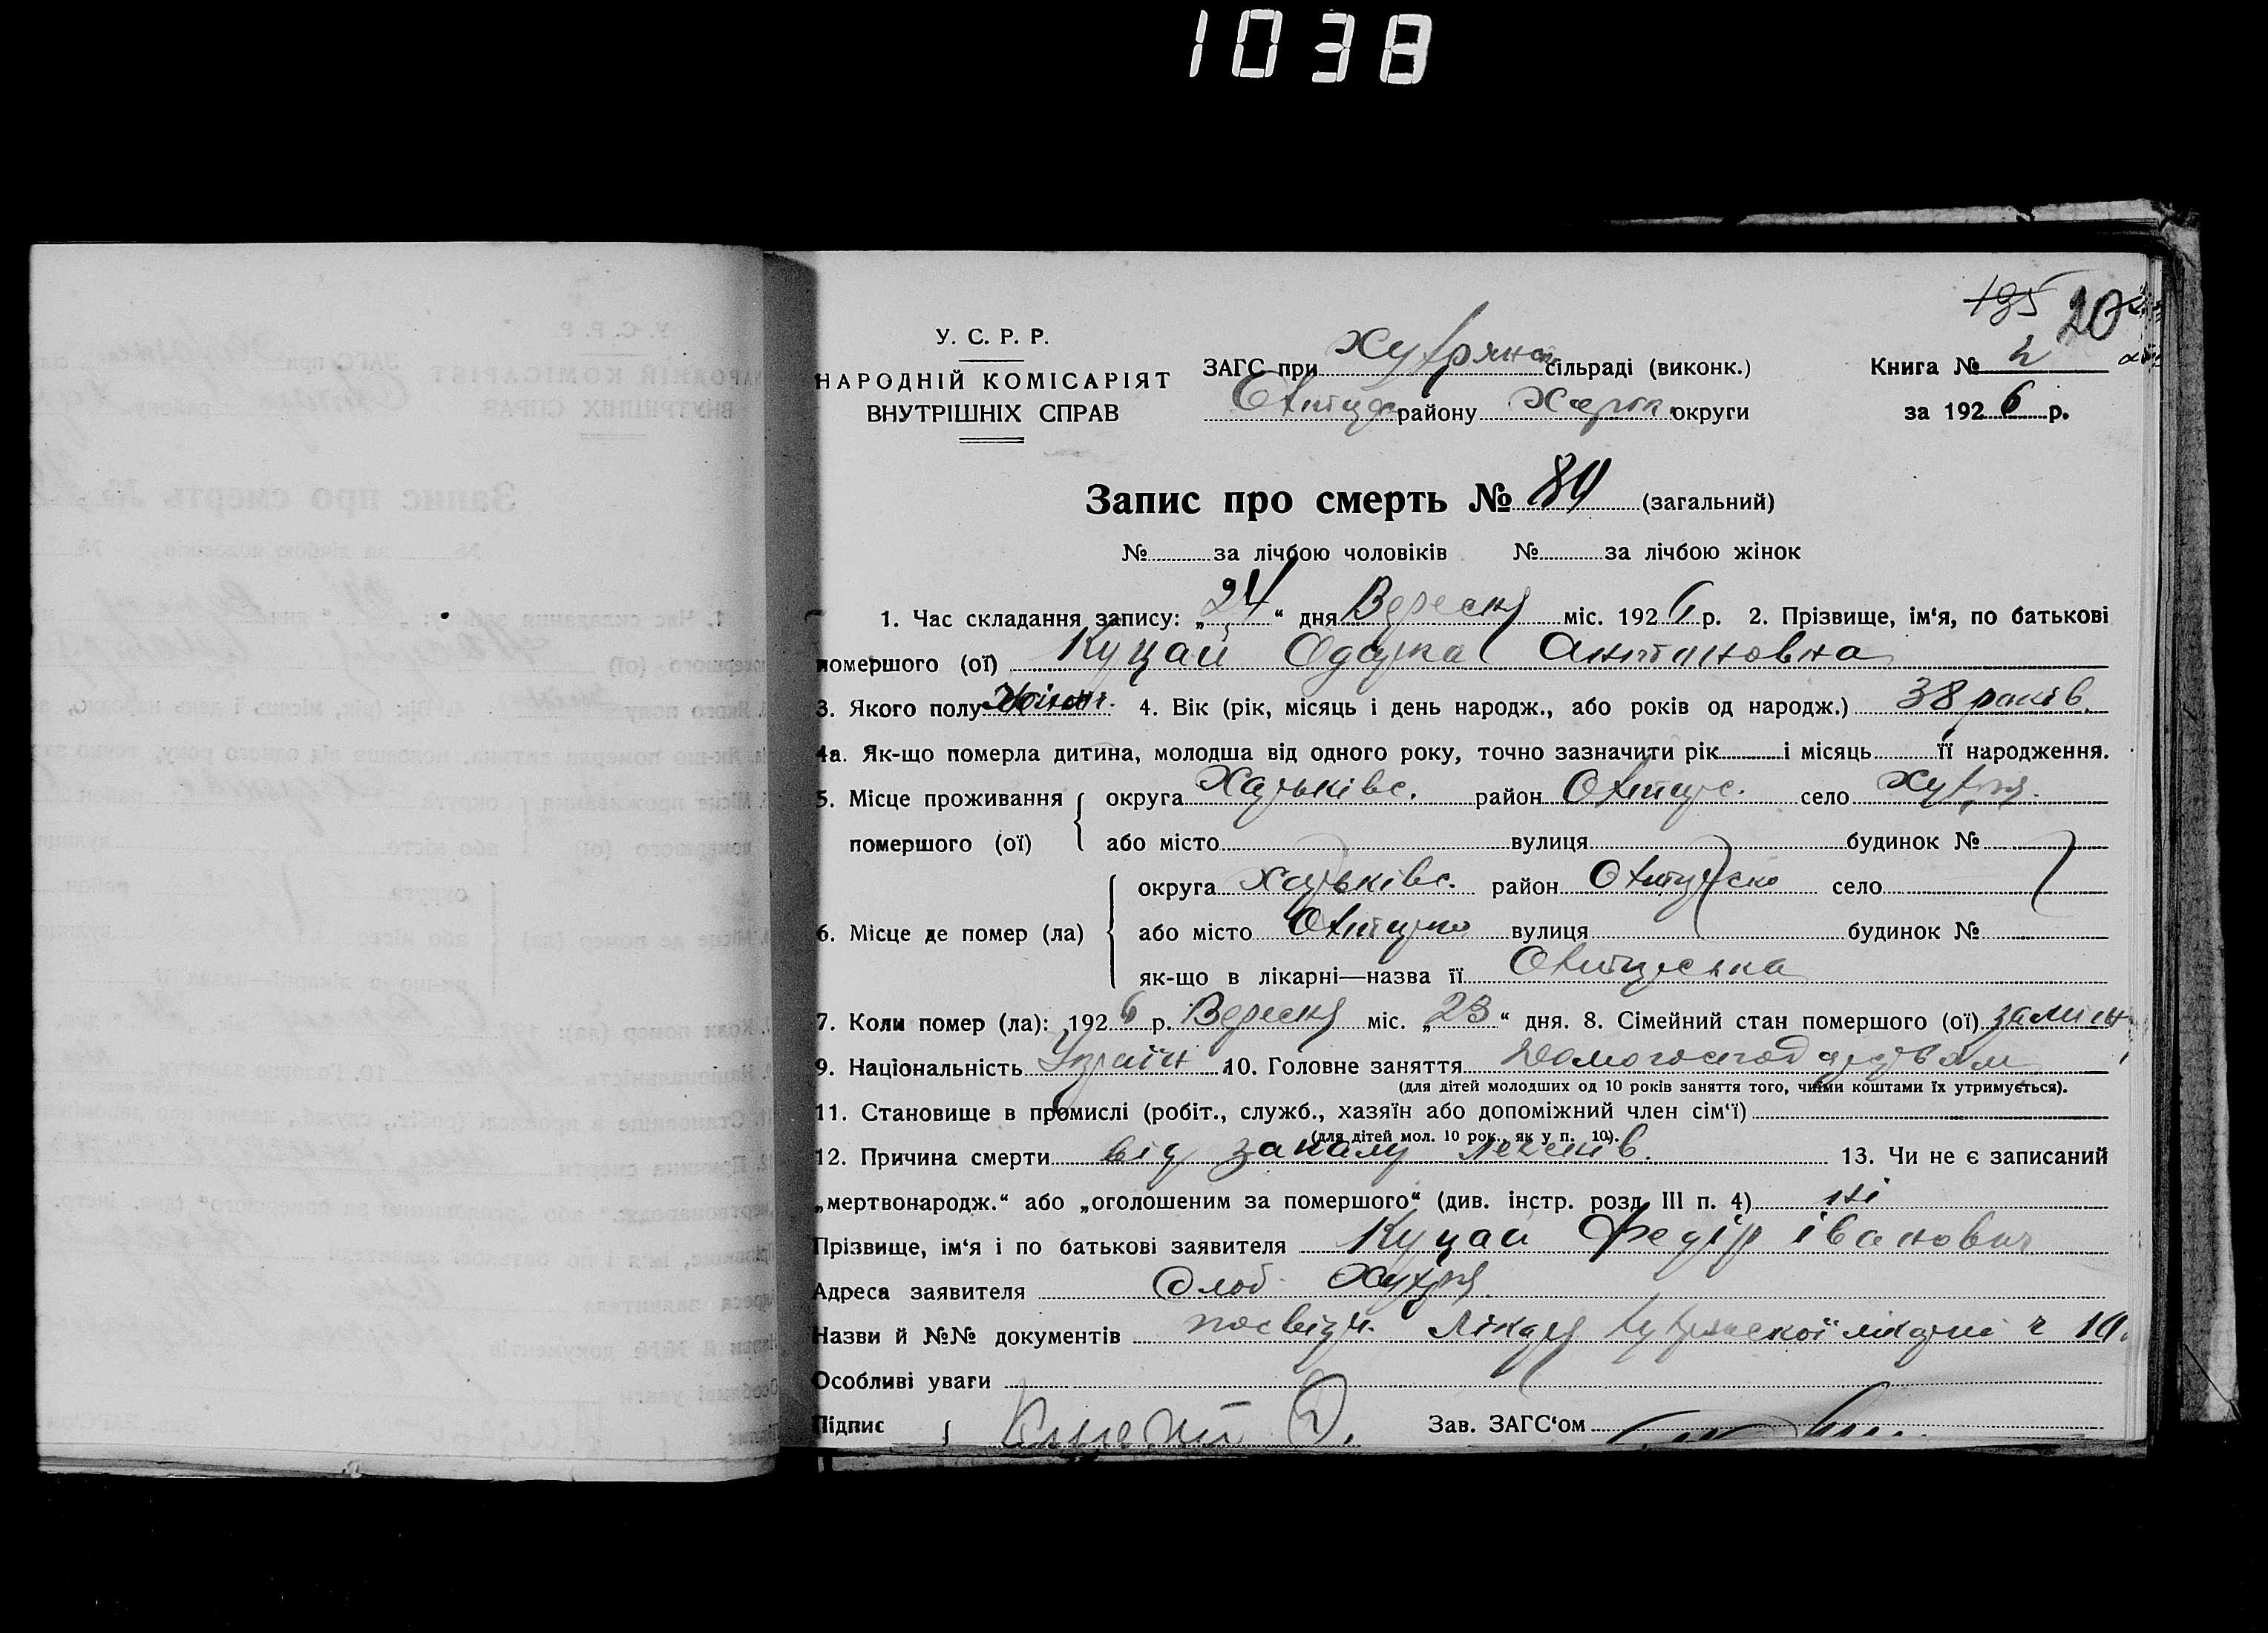 1038
195 20
У. С. Р. Р.
НАРОДНІЙ КОМІСАРІЯТ
ВНУТРІШНІХ СПРАВ
ЗАГС при Хухрянс сільраді (виконк.)
Охтирс району Харк. округи
Книга № 2
за 1926 р.
Запис про смерть № 89 (загальний)
№ за лічбою чоловіків № за лічбою жінок
1. Час складання запису: „24“ дня Вересня міс. 1926 р. 2. Прізвище, ім‘я, по батькові
помершого (ої) Куцай Одарка Антоновна
3. Якого полу жіноч. 4. Вік (рік, місяць і день народж., або років од народж.) 38 років.
4а. Як-що померла дитина, молодша від одного року, точно зазначити рік і місяць її народження.
5. Місце проживання округа Харьківс. район Охтирс. село Хухря.
помершого (ої) або місто вулиця будинок №
округа Харьківс. район Охтирсько село
6. Місце де помер (ла) або місто Охтирка вулиця будинок №
як-що в лікарні—назва її Охтирська
7. Коли помер (ла): 1926 р. Вересня міс. „23“ дня. 8. Сімейний стан помершого (ої)
9. Національність Україн 10. Головне заняття
(для дітей молодших од 10 років заняття того, чиїми коштами їх утримується).
11. Становище в промислі (робіт., служб., хазяїн або допоміжний член сім‘ї)
(для дітей мол. 10 рок., як у п. 10).
12. Причина смерти від запалу легенів. 13. Чи не є записаний
„мертвонародж.“ або „оголошеним за помершого“ (див. інстр. розд. III п. 4) ні
Прізвище, ім‘я і по батькові заявителя Куцай Федір Іванович
Адреса заявителя Слоб. Хухря
Назви й №№ документів посвідч. Лікаря Хухрянської лікарні ч
Особливі уваги
Підпис
Зав. ЗАГС‘ом